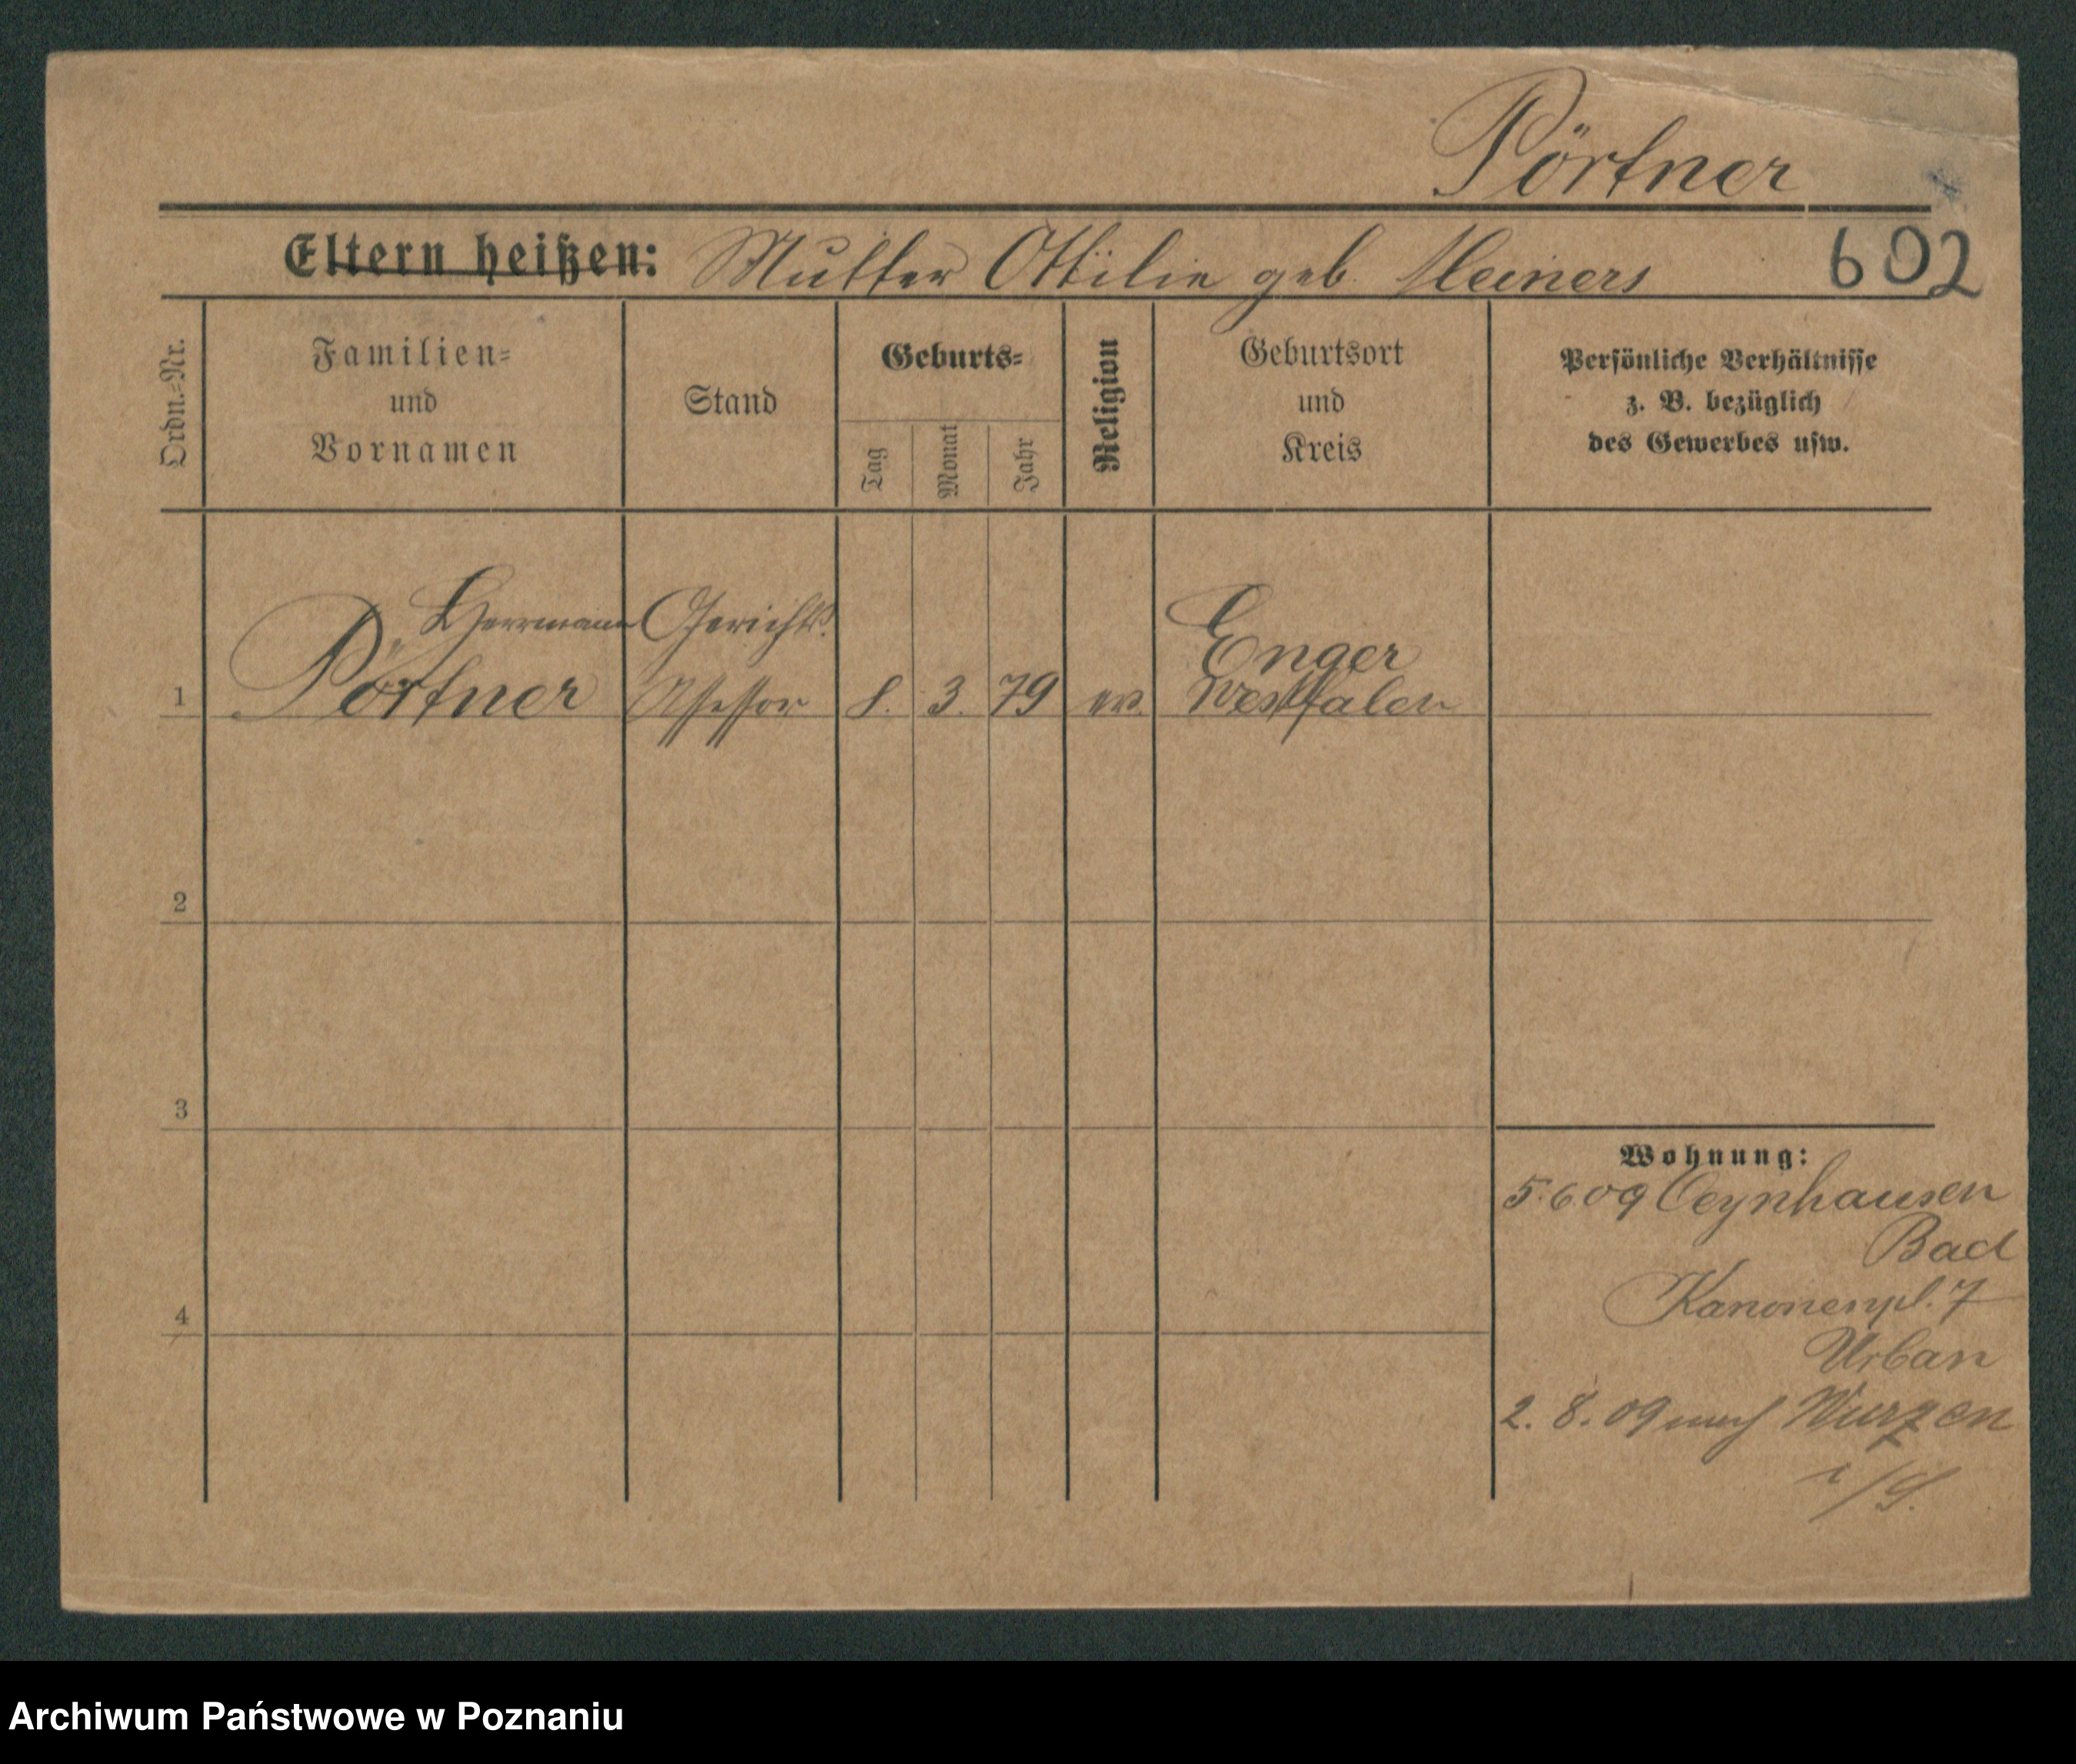 Pörtner
Eltern heißen: Mutter Ottilie geb. Meiners
602
Ordn.-Nr.
Familien-
und
Vornamen
Stand
Geburts-
Tag
Monat
Jahr
Religion
Geburtsort
und
Kreis
Persönliche Verhältnisse
z. B. bezüglich
des Gewerbes usw.
Herrmann Gerichts.
Enger
1 Pörtner Assessor 8. 3. 79 ev. Westfalen
2
3
Wohnung:
5.6 09 Oeynhausen
Bad
4
Kanonenpl. 7
Urban
2. 8. 09 nach Wurzen
i/S.
Archiwum Państwowe w Poznaniu